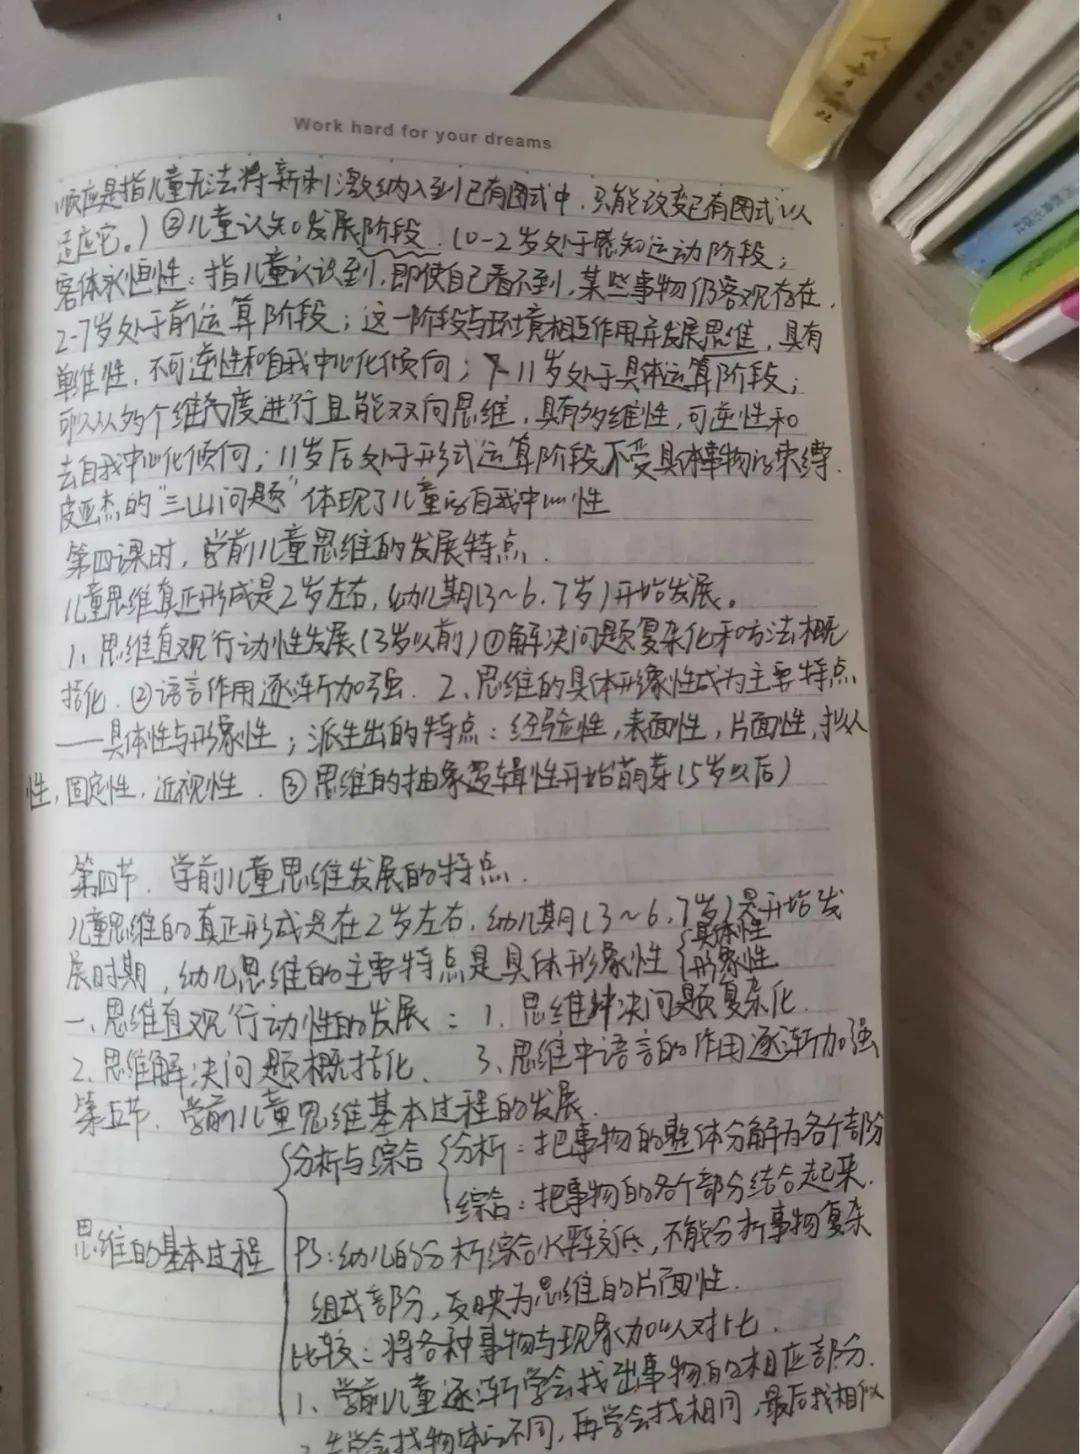 Work hard for your dreams
顺应是指儿童无法将新刺激纳入到已有图式中,只能改变已有图式以
适应它。)②儿童认知发展阶段.(0-2岁处于感知运动阶段;
客体永恒性:指儿童认识到,即使自己看不到,某些事物仍客观存在.
2-7岁处于前运算阶段;这一阶段与环境相互作用并发展思维,具有
单维性,不可逆性和自我中心化倾向;7-11岁处于具体运算阶段;
可以从多个维度进行且能双向思维,具有多维性,可逆性和
去自我中心化倾向;11岁后处于形式运算阶段,不受具体事物的束缚.
皮亚杰的"三山问题"体现了儿童的自我中心性
第四课时,学前儿童思维的发展特点.
儿童思维真正形成是2岁左右,幼儿期(3~6.7岁)开始发展。
1、思维直观行动性发展(3岁以前)①解决问题复杂化和方法概
括化.②语言作用逐渐加强. 2、思维的具体形象性成为主要特点
——具体性与形象性;派生出的特点:经验性,表面性,片面性,拟人
性,固定性,近视性.③思维的抽象逻辑性开始萌芽(5岁以后)
第四节.学前儿童思维发展的特点.
儿童思维的真正形成是在2岁左右,幼儿期(3~6.7岁)是开始发
展时期,幼儿思维的主要特点是具体形象性{具体性
形象性
一、思维直观行动性的发展:1.思维解决问题复杂化.
2、思维解决问题概括化、 3、思维中语言的作用逐渐加强
第五节.学前儿童思维基本过程的发展.
思维的基本过程
{分析与综合{分析:把事物的整体分解为各个部分
综合:把事物的各个部分结合起来.
PS:幼儿的分析综合水平较低,不能分析事物复杂
组成部分,反映为思维的片面性.
比较:将各种事物与现象加以对比.
1、学前儿童逐渐学会找出事物的相应部分.
2.先学会找物体的不同,再学会找相同,最后找相似